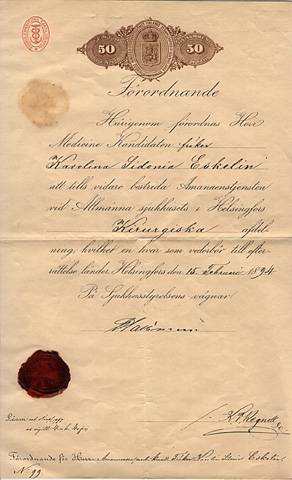 50 50
Förordnande
Härigenom förordnas Herr
Medicine Kandidaten fröken
Karolina Sidonia Eskelin
att tills vidare bestrida Amanuenstjensten
vid Allmänna sjukhusets i Helsingfors
Kirurgiska afdel-
ning, hvilket en hvar som vederbör till efter-
rättelse länder. Helsingfors den 15 Februari 1894.
På Sjukhusstyrelsens vägnar
Förordnande för Herr Eskelin
N 99